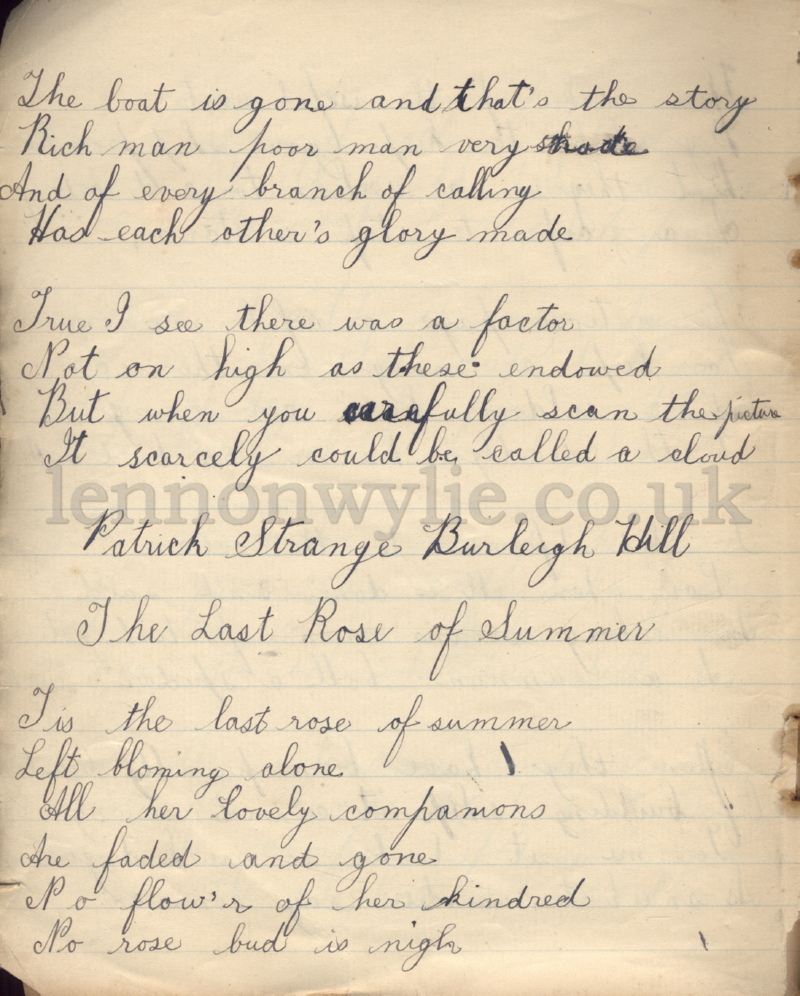 The boat is gone and that's the story
Rich man poor man very shade
And of every branch of calling
Has each other's glory made
True I see there was a factor
Not on high as these endowed
But when you carefully scan the picture
It scarcely could be called a cloud
lennonwylie.co.uk
Patrick Strange Burleigh Hill
The Last Rose of Summer
Tis the last rose of summer
Left bloming alone
All her lovely companions
Are faded and gone
No flow'r of her kindred
No rose bud is nigh